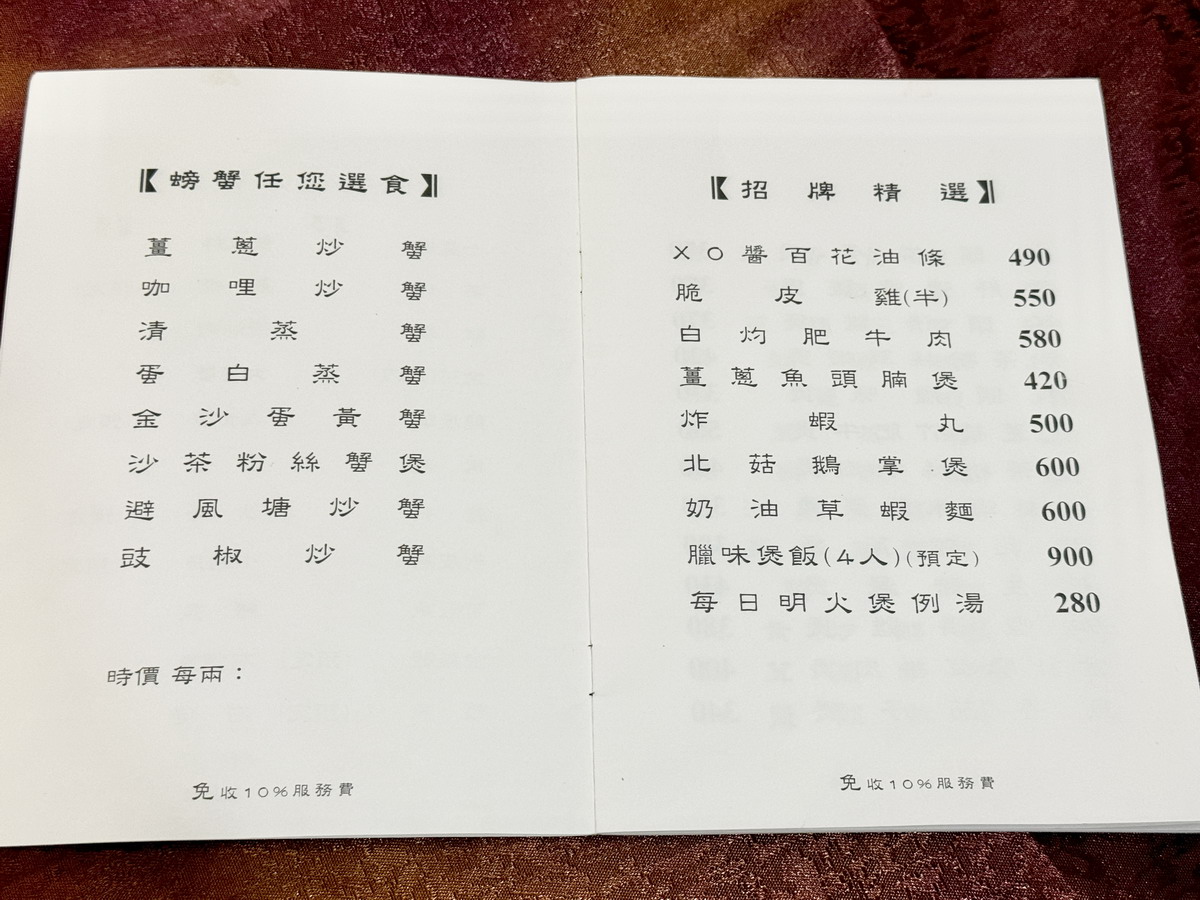 【螃蟹任您選食】
薑蔥炒蟹
咖哩炒蟹
清蒸蟹
蛋白蒸蟹
金沙蛋黃蟹
沙茶粉絲蟹煲
避風塘炒蟹
豉椒炒蟹
時價 每兩：
免收10%服務費
【招牌精選】
XO醬百花油條 490
脆皮雞(半) 550
白灼肥牛肉 580
薑蔥魚頭腩煲 420
炸蝦丸 500
北菇鵝掌煲 600
奶油草蝦麵 600
臘味煲飯(4人)(預定) 900
每日明火煲例湯 280
免收10%服務費